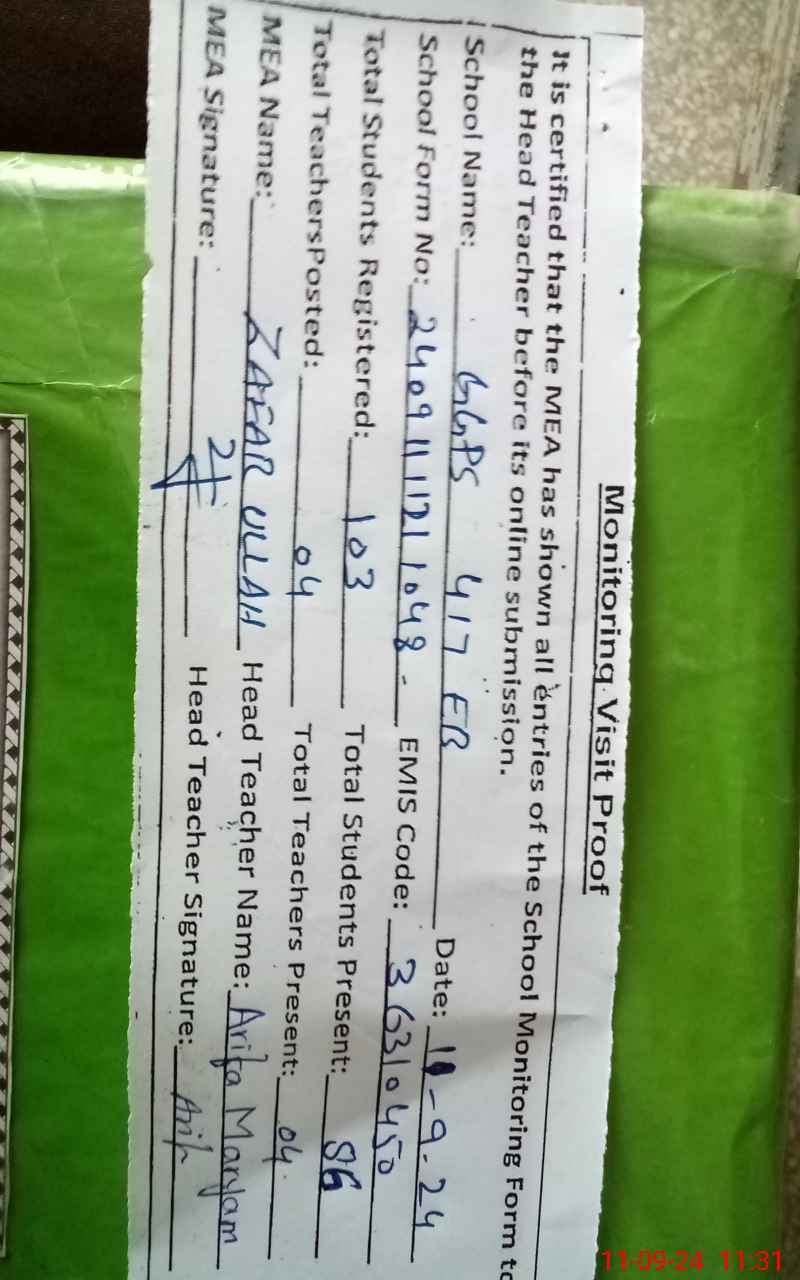 Monitoring Visit Proof
It is certified that the MEA has shown all entries of the School Monitoring Form to
the Head Teacher before its online submission.
School Name: GGPS 417 EB Date: 11-9-24
School Form No: 2409111121 1048 - EMIS Code: 36310450
Total Students Registered: 103 Total Students Present: 86
Total TeachersPosted: 04 Total Teachers Present: 04
MEA Name: ZAFAR ULLAH Head Teacher Name: Arifa Maryam
MEA Signature: Head Teacher Signature: Arifa
11-09-24 11:31